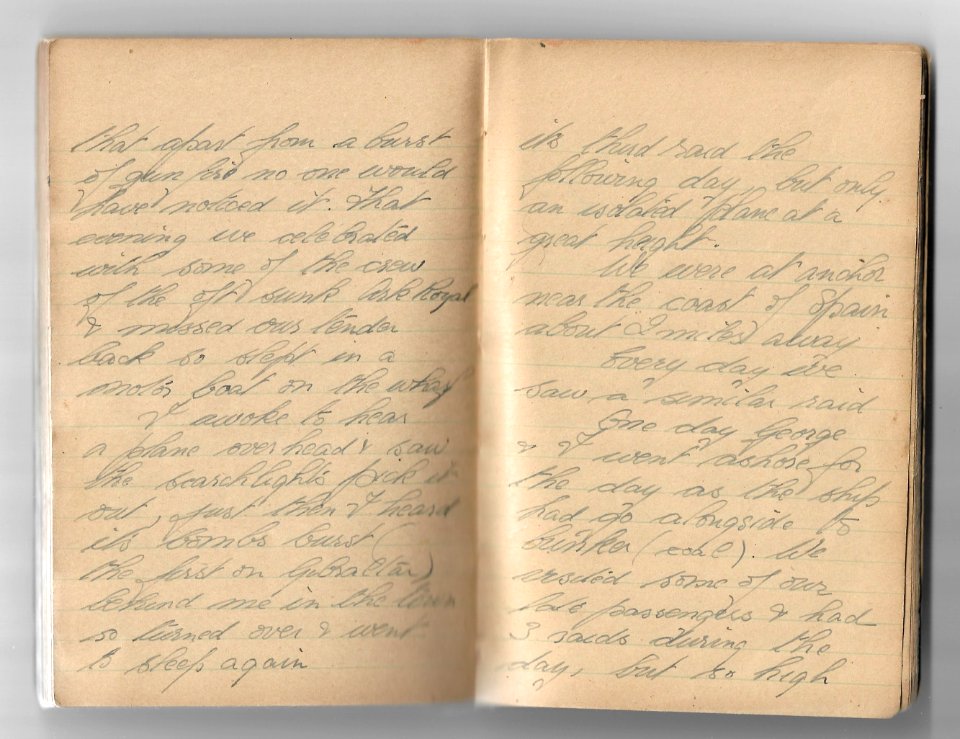 that apart from a burst
of gun fire no one would
have noticed it. That
evening we celebrated
with some of the crew
of the oft sunk Ark Royal
& missed our tender
back so slept in a
motor boat on the wharf
I awoke to hear
a plane over head & saw
the searchlights pick it
out, just then I heard
its bombs burst (
the first on Gibraltar)
behind me in the town
so turned over & went
to sleep again
its third raid the
following day, but only
an isolated plane at a
great height.
We were at anchor
near the coast of Spain
about 2 miles away
Every day we
saw a similar raid
One day George
& I went ashore for
the day as the ship
had go alongside to
bunker (coal). We
visited some of our
late passengers & had
3 raids during the
day, but so high